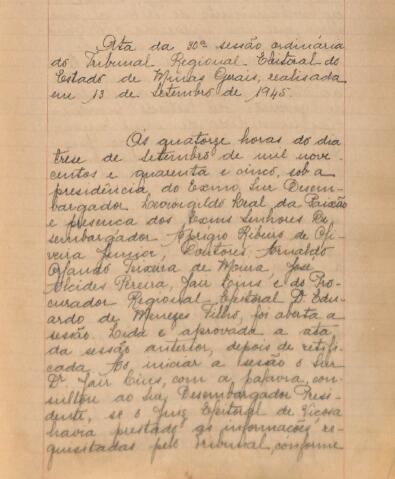 Ata da 30ª sessão ordinária
do Tribunal Regional Eleitoral do
Estado de Minas Gerais, realisada
em 13 de Setembro de 1945.
Ás quatorze horas do dia
trese de Setembro de mil nove-
centos e quarenta e cinco, sob a
presidência do Exmo Snr Desem-
bargador Leovigildo Leal da Paixão
e presença dos Exmos Senhores De-
sembargador Aprigio Ribeiro de Oli-
veira Junior, Doutores Arnaldo
Moura, José
Alcides Pereira, Jair Lins e do Pro-
curador Regional Eleitoral D. Edu-
ardo de Menezes Filho, foi aberta a
sessão. Lida e aprovada a ata
da sessão anterior, depois de retifi-
cada. Ao iniciar a sessão o Snr
Dr. Jair Lins, com a palavra, con-
sultou ao Snr. Desembargador Presi-
dente, se o Juiz Eleitoral de Viçosa
havia prestado as informações re-
quisitadas pelo Tribunal, conforme